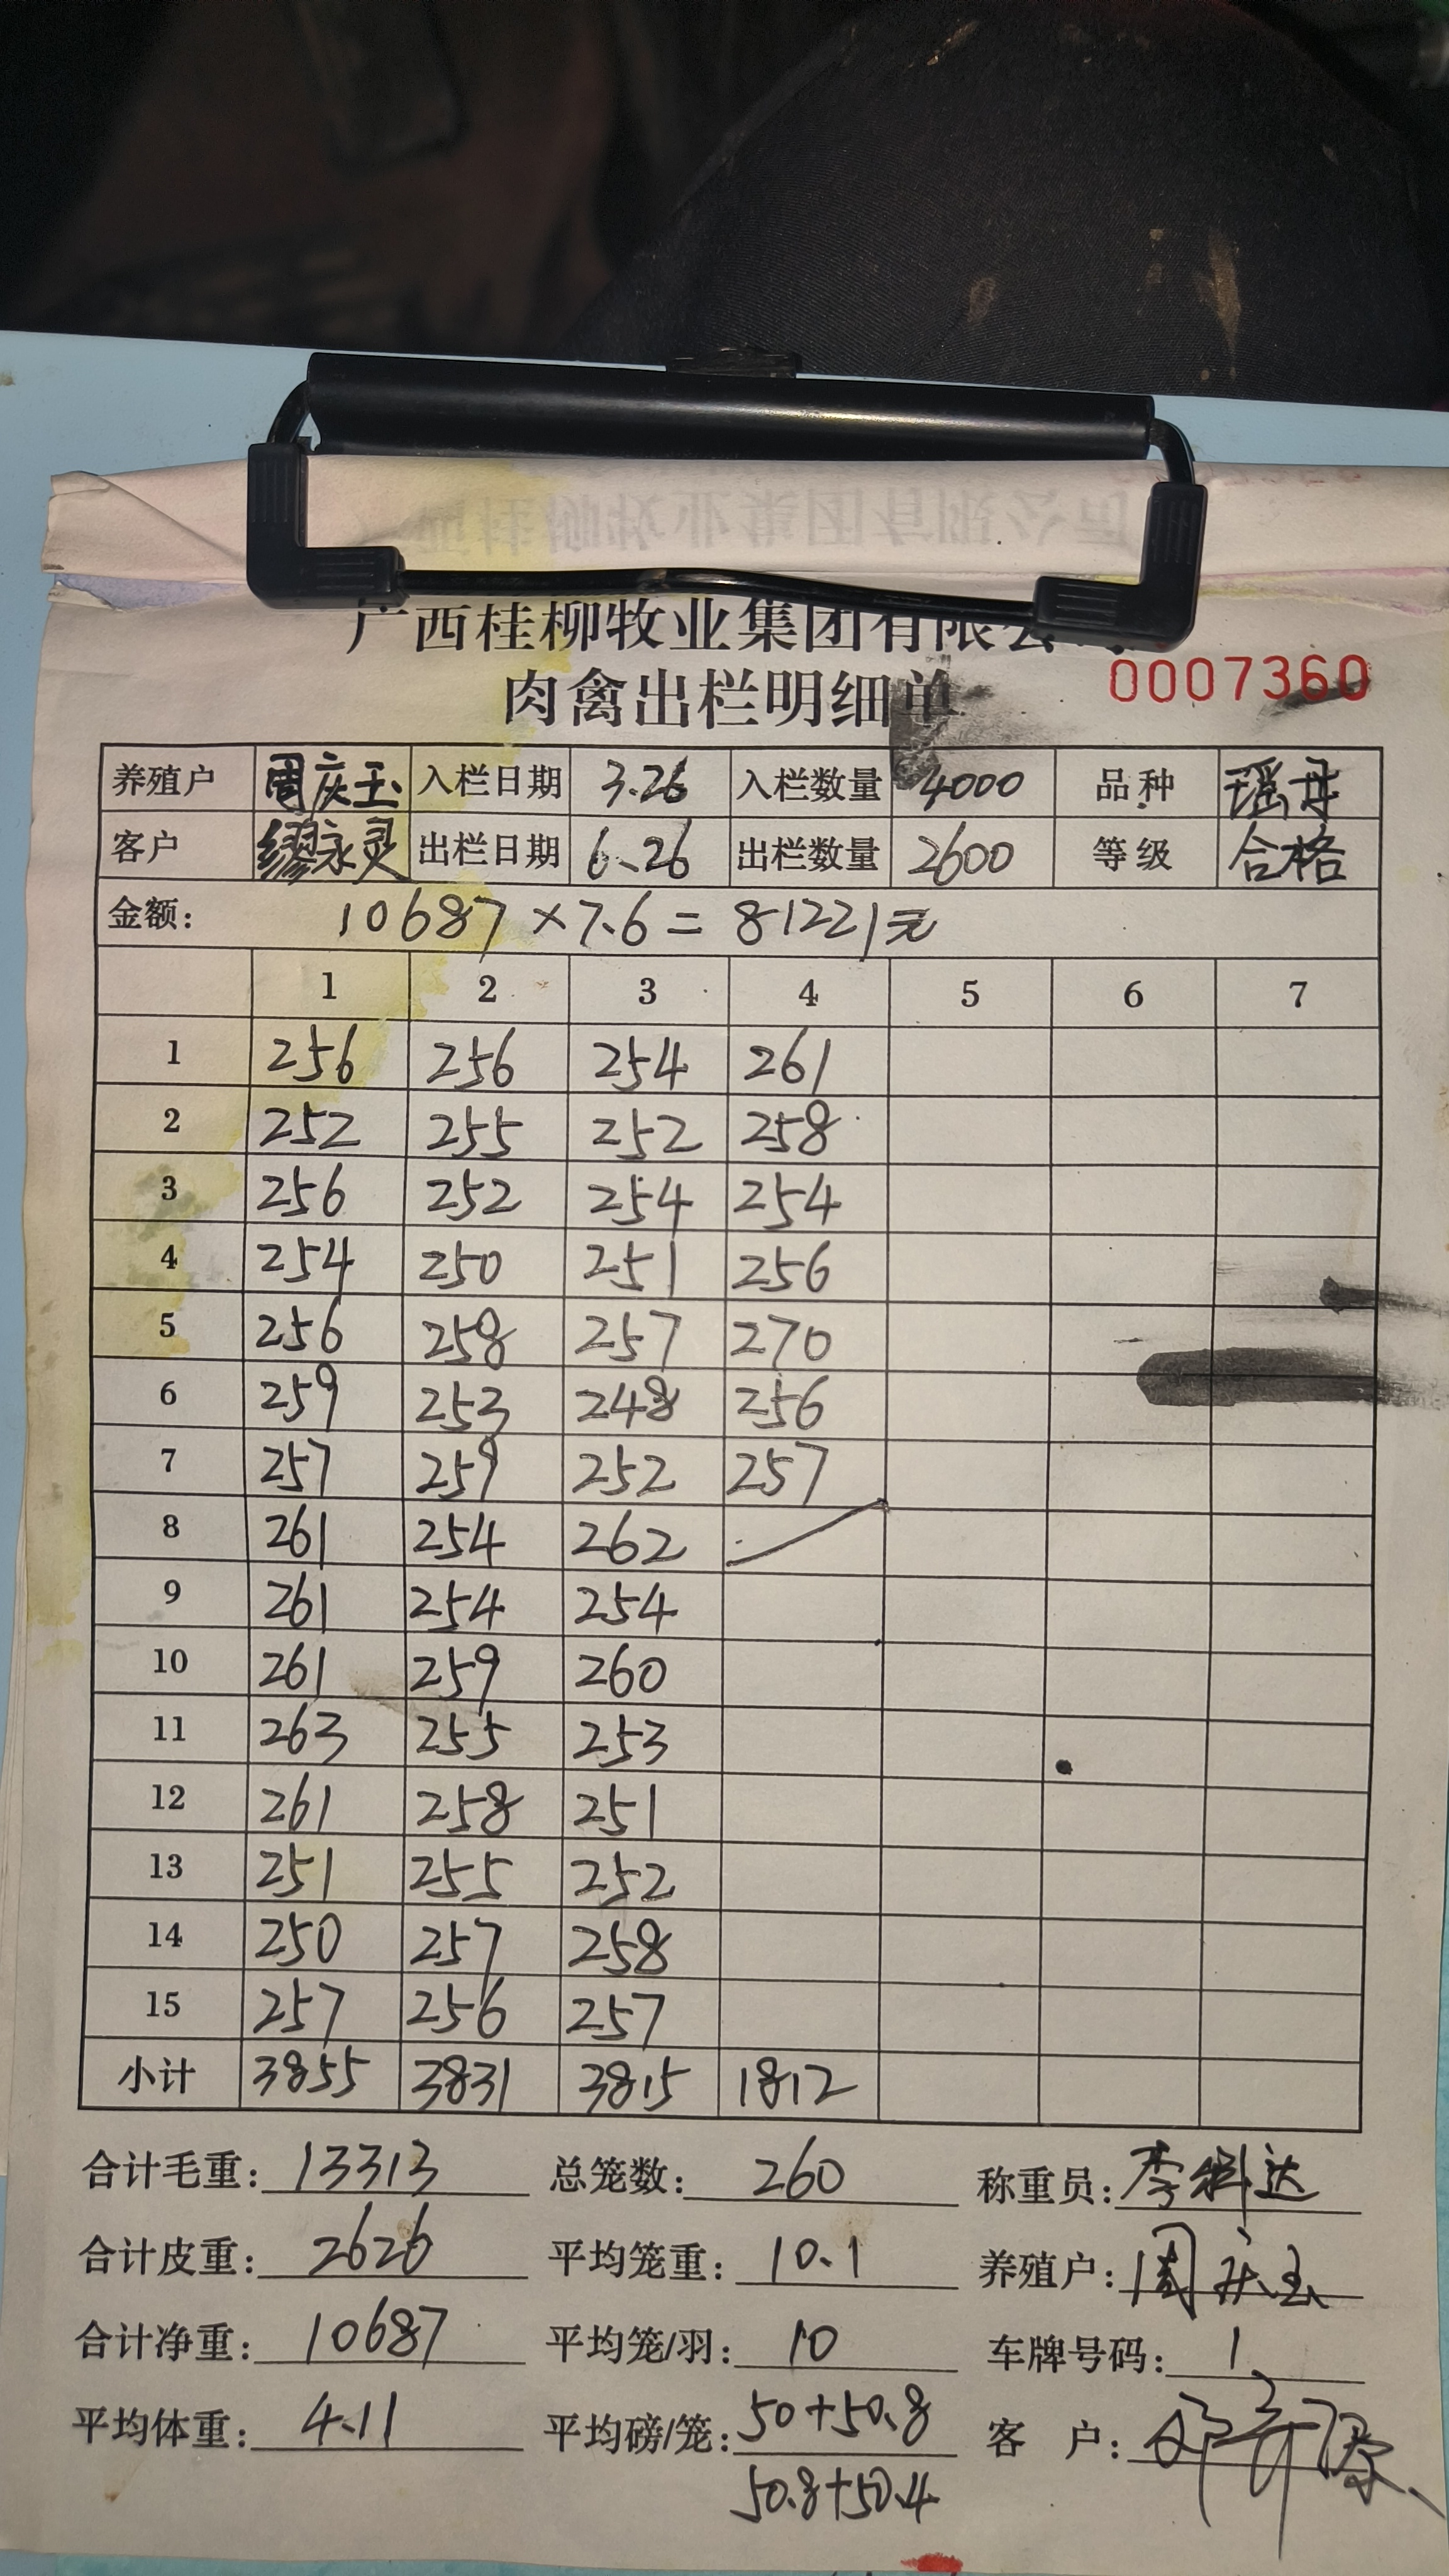 广西桂柳牧业集团有限公
肉禽出栏明细单
0007360
养殖户 周庆玉 入栏日期 3.26 入栏数量 4000 品种 瑶丹
客户 缪永灵 出栏日期 6.26 出栏数量 2600 等级 合格
金额: 10687×7.6=81221元
1 2 3 4 5 6 7
1 256 256 254 261
2 252 255 252 258
3 256 252 254 254
4 254 250 251 256
5 256 258 257 270
6 259 253 248 256
7 257 259 252 257
8 261 254 262
9 261 254 254
10 261 259 260
11 263 255 253
12 261 258 251
13 251 255 252
14 250 257 258
15 257 256 257
小计 3855 3831 3815 1812
合计毛重: 13313 总笼数: 260 称重员: 李
合计皮重: 2626 平均笼重: 10.1 养殖户: 周庆玉
合计净重: 10687 平均笼/羽: 10 车牌号码: 1
平均体重: 4.11 平均磅/笼: 50+50.8 客 户:
50.8+50.4